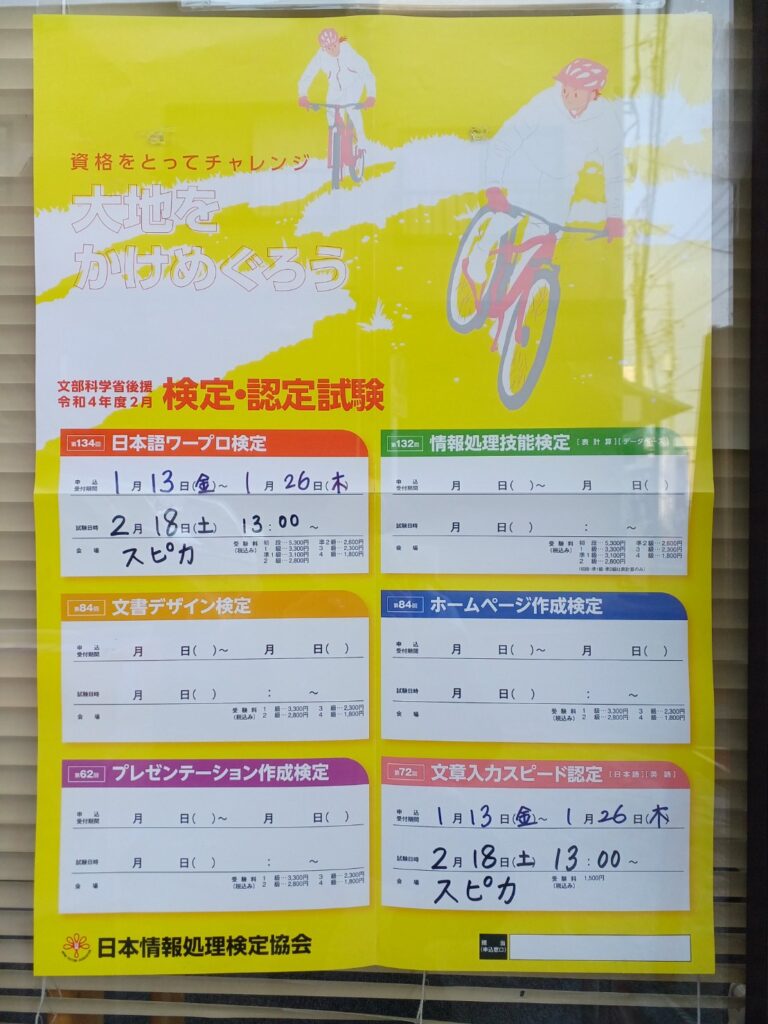 資格をとってチャレンジ
大地を
かけめぐろう
文部科学省後援
令和4年度2月
検定・認定試験
第134回 日本語ワープロ検定
申込受付期間 1月13日(金)〜1月26日(木)
試験日時 2月18日(土) 13:00〜
会場 スピカ
受験料(税込み) 初段…5,300円 準2級…2,600円
1級…3,300円 3級…2,300円
準1級…3,100円 4級…1,800円
2級…2,800円
第132回 情報処理技能検定 [表計算][データベース]
申込受付期間 月 日( )〜 月 日( )
試験日時 月 日( ) : 〜
会場
受験料(税込み) 初段…5,300円 準2級…2,600円
1級…3,300円 3級…2,300円
準1級…3,100円 4級…1,800円
2級…2,800円
(初段・準1級・準2級は表計算のみ)
第84回 文書デザイン検定
申込受付期間 月 日( )〜 月 日( )
試験日時 月 日( ) : 〜
会場
受験料(税込み) 1級…3,300円 3級…2,300円
2級…2,800円 4級…1,800円
第84回 ホームページ作成検定
申込受付期間 月 日( )〜 月 日( )
試験日時 月 日( ) : 〜
会場
受験料(税込み) 1級…3,300円 3級…2,300円
2級…2,800円 4級…1,800円
第62回 プレゼンテーション作成検定
申込受付期間 月 日( )〜 月 日( )
試験日時 月 日( ) : 〜
会場
受験料(税込み) 1級…3,300円 3級…2,300円
2級…2,800円 4級…1,800円
第72回 文章入力スピード認定 [日本語][英語]
申込受付期間 1月13日(金)〜1月26日(木)
試験日時 2月18日(土) 13:00〜
会場 スピカ
受験料(税込み) 1,500円
日本情報処理検定協会
担当
(申込窓口)